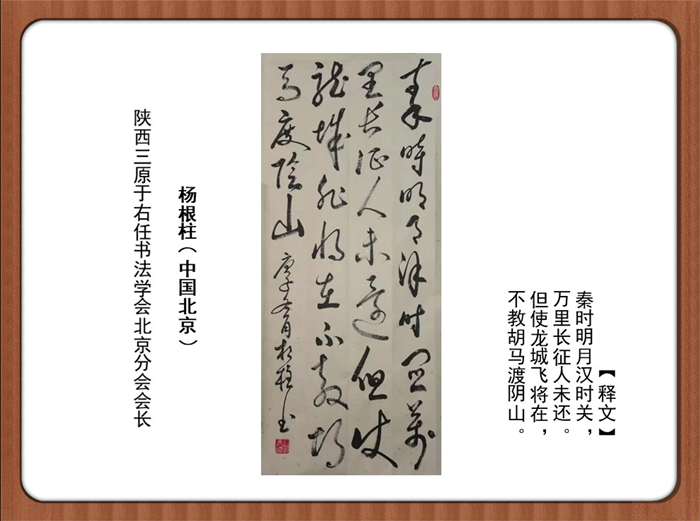 【释文】
秦时明月汉时关，
万里长征人未还。
但使龙城飞将在，
不教胡马渡阴山。
秦時明月漢时关萬
里长征人未還但使
龍城飛將在不教胡
馬度陰山 庚子冬月根柱书
杨根柱（中国北京）
陕西三原于右任书法学会北京分会会长